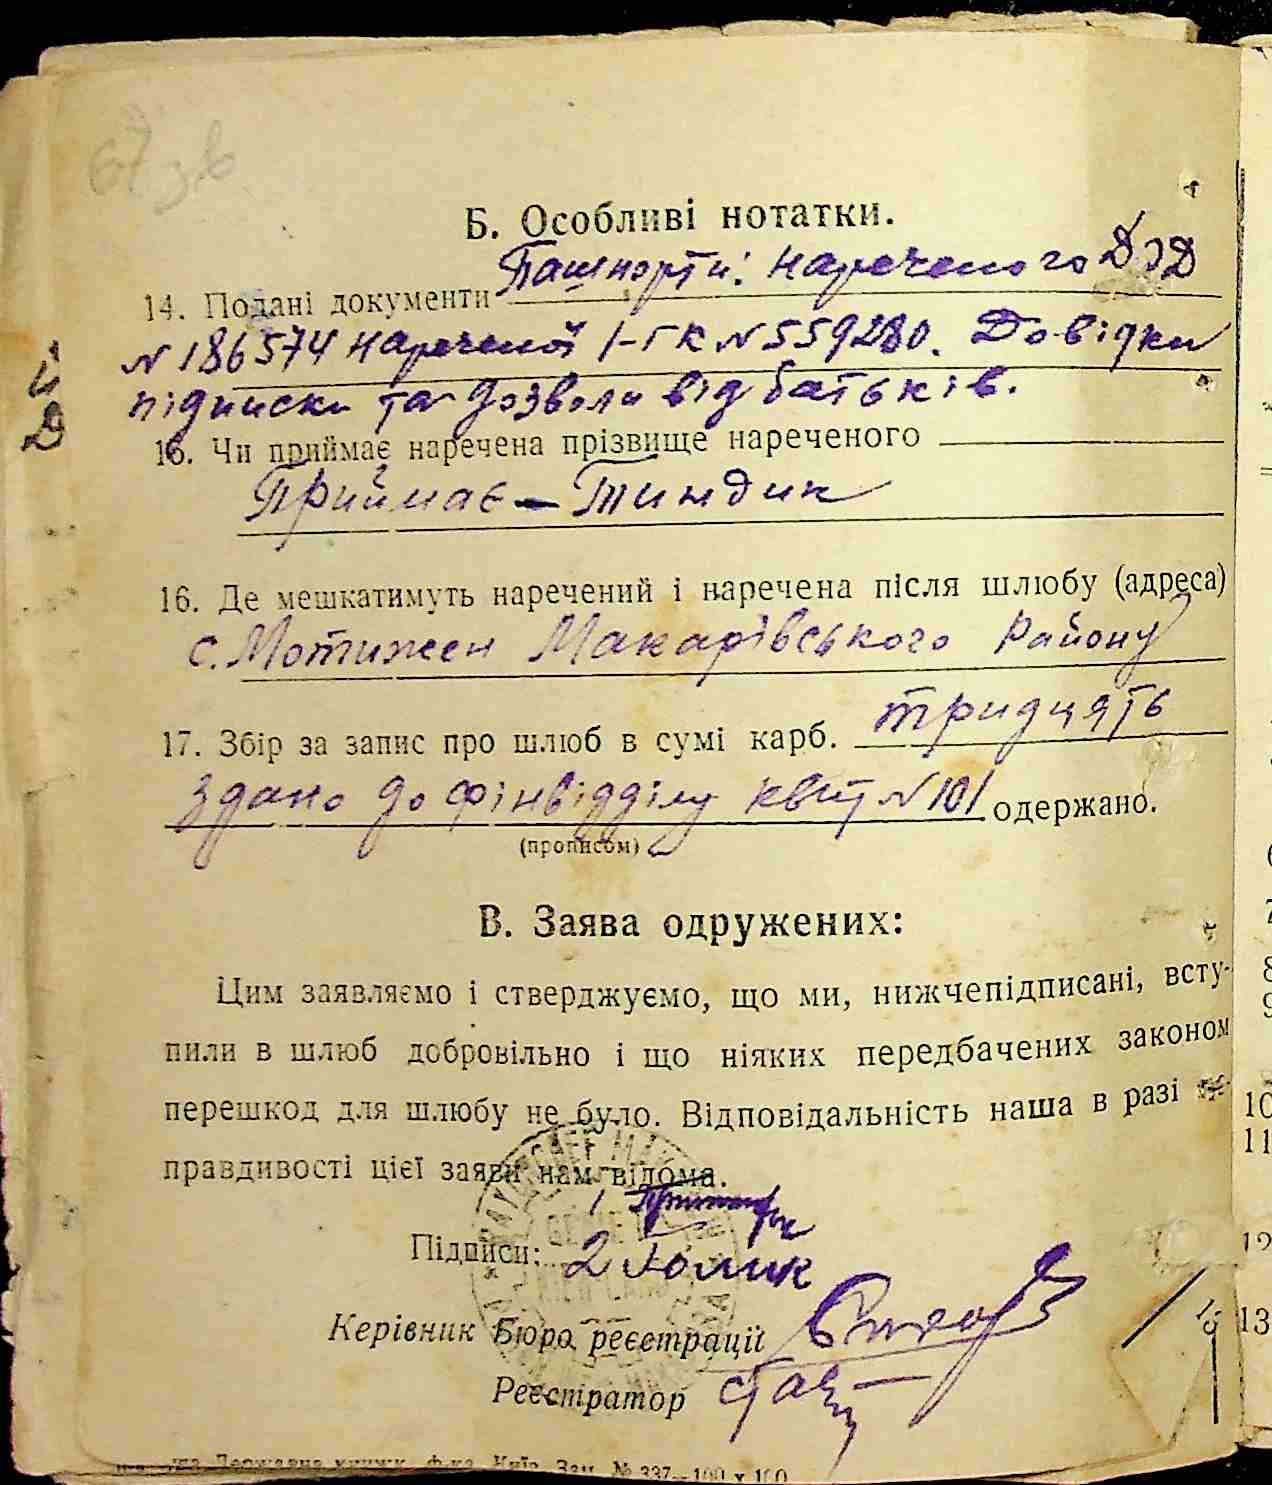 67 зв
Б. Особливі нотатки.
14. Подані документи Пашпорти: нареченого ДЭД
N 186574 нареченої I-ГК N 559280. Довідки
підписки та дозволи від батьків.
15. Чи приймає наречена прізвище нареченого
Приймає – Тиндик
16. Де мешкатимуть наречений і наречена після шлюбу (адреса)
с. Мотижен Макарівського Району
17. Збір за запис про шлюб в сумі карб. тридцять
здано до фінвідділу квит N 101 одержано.
(прописом)
В. Заява одружених:
Цим заявляємо і стверджуємо, що ми, нижчепідписані, всту-
пили в шлюб добровільно і що ніяких передбачених законом
перешкод для шлюбу не було. Відповідальність наша в разі не-
правдивості цієї заяви нам відома.
1
Підписи: 2
Керівник Бюро реєстрації
Реєстратор
Державна книжк. ф-ка, Київ, Зам. № 337—100 х 100